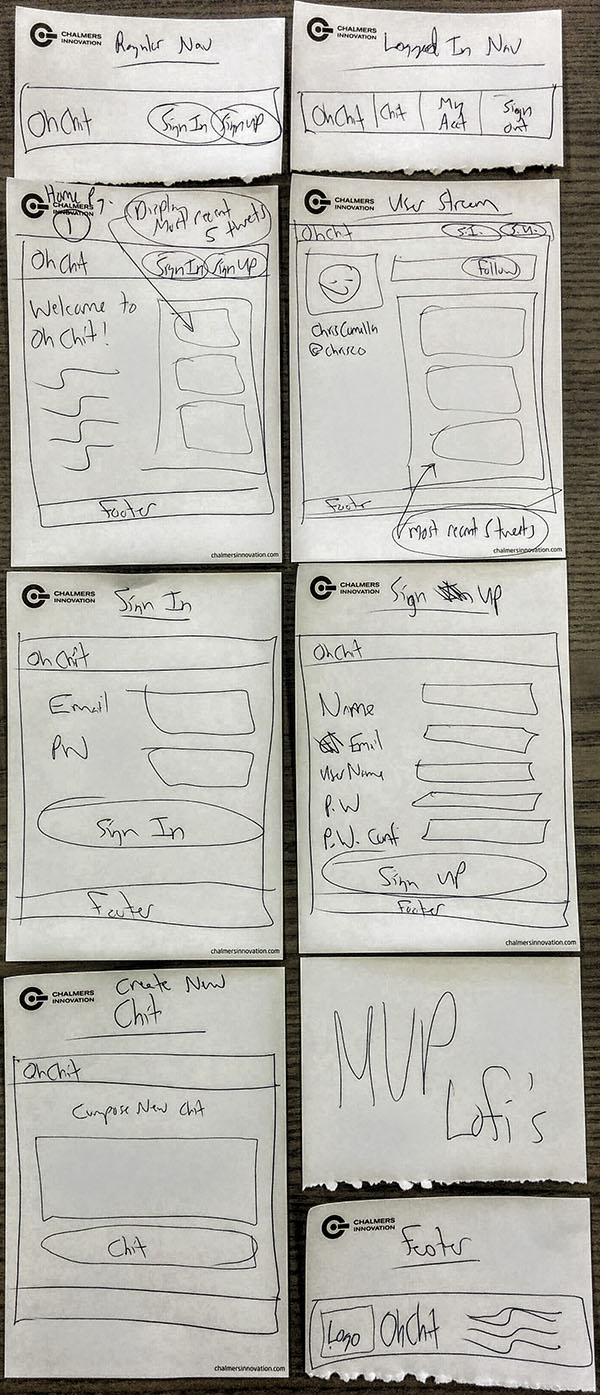 CHALMERS
INNOVATION
Regular Nav
OhChit
Sign In
Sign Up
CHALMERS
INNOVATION
Logged In Nav
OhChit
Chit
My
Acct
Sign
Out
CHALMERS
INNOVATION
Home Pg.
1
Display
Most recent
5 tweets
OhChit
Sign In
Sign Up
Welcome to
OhChit!
Footer
chalmersinnovation.com
User Stream
OhChit
S.I.
S.U.
Follow
@chrisco
Footer
most recent 5 tweets
chalmersinnovation.com
CHALMERS
INNOVATION
Sign In
OhChit
Email
PW
Sign In
Footer
chalmersinnovation.com
CHALMERS
INNOVATION
Sign Up
OhChit
Name
Email
UserName
P.W
P.W. Conf
Sign Up
Footer
chalmersinnovation.com
CHALMERS
INNOVATION
Create New
Chit
OhChit
Compose New Chit
Chit
chalmersinnovation.com
MVP
Lofi's
CHALMERS
INNOVATION
Footer
Logo
OhChit